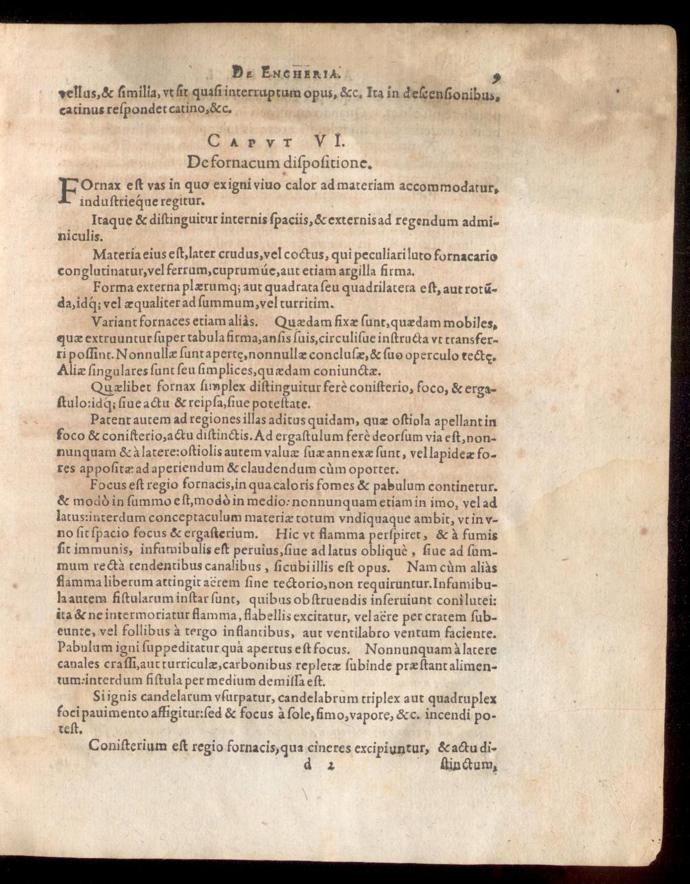 DE ENCHERIA. 9
vellus, & similia, vt sit quasi interruptum opus, &c. Ita in descensionibus,
catinus respondet catino, &c.
CAPVT VI.
De fornacum dispositione.
FOrnax est vas in quo ex igni viuo calor ad materiam accommodatur,
industrieq́ue regitur.
Itaque & distinguitur internis spaciis, & externis ad regendum admi-
niculis.
Materia eius est, later crudus, vel coctus, qui peculiari luto fornacario
conglutinatur, vel ferrum, cuprumúe, aut etiam argilla firma.
Forma externa plærumq; aut quadrata seu quadrilatera est, aut rotū-
da, idq́; vel æqualiter ad summum, vel turritim.
Variant fornaces etiam aliàs. Quædam fixæ sunt, quædam mobiles,
quæ extruuntur super tabula firma, ansis suis, circulisue instructa vt transfer-
ri possint. Nonnullæ sunt apertę, nonnullæ conclusæ, & suo operculo tectę.
Aliæ singulares sunt seu simplices, quædam coniunctæ.
Quælibet fornax simplex distinguitur ferè conisterio, foco, & erga-
stulo: idq́; siue actu & reipsa, siue potestate.
Patent autem ad regiones illas aditus quidam, quæ ostiola apellant in
foco & conisterio, actu distinctis. Ad ergastulum ferè deorsum via est, non-
nunquam & à latere: ostiolis autem valuæ suæ annexæ sunt, vel lapideæ fo-
res appositæ ad aperiendum & claudendum cùm oportet.
Focus est regio fornacis, in qua caloris fomes & pabulum continetur.
& modò in summo est, modò in medio: nonnunquam etiam in imo, vel ad
latus: interdum conceptaculum materiæ totum vndiquaque ambit, vt in v-
no sit spacio focus & ergasterium. Hic vt flamma perspiret, & à fumis
sit immunis, infumibulis est peruius, siue ad latus obliquè, siue ad sum-
mum rectà tendentibus canalibus, sicubi illis est opus. Nam cùm aliàs
flamma liberum attingit aërem sine tectorio, non requiruntur. Infumibu-
la autem fistularum instar sunt, quibus obstruendis inseruiunt coni lutei:
ita & ne intermoriatur flamma, flabellis excitatur, vel aëre per cratem sub-
eunte, vel follibus à tergo inflantibus, aut ventilabro ventum faciente.
Pabulum igni suppeditatur quà apertus est focus. Nonnunquam à latere
canales crassi, aut turriculæ, carbonibus repletæ subinde præstant alimen-
tum: interdum fistula per medium demissa est.
Si ignis candelarum vsurpatur, candelabrum triplex aut quadruplex
foci pauimento affigitur: sed & focus à sole, fimo, vapore, &c. incendi po-
test.
Conisterium est regio fornacis, qua cineres excipiuntur, & actu di-
d 2 stinctum,